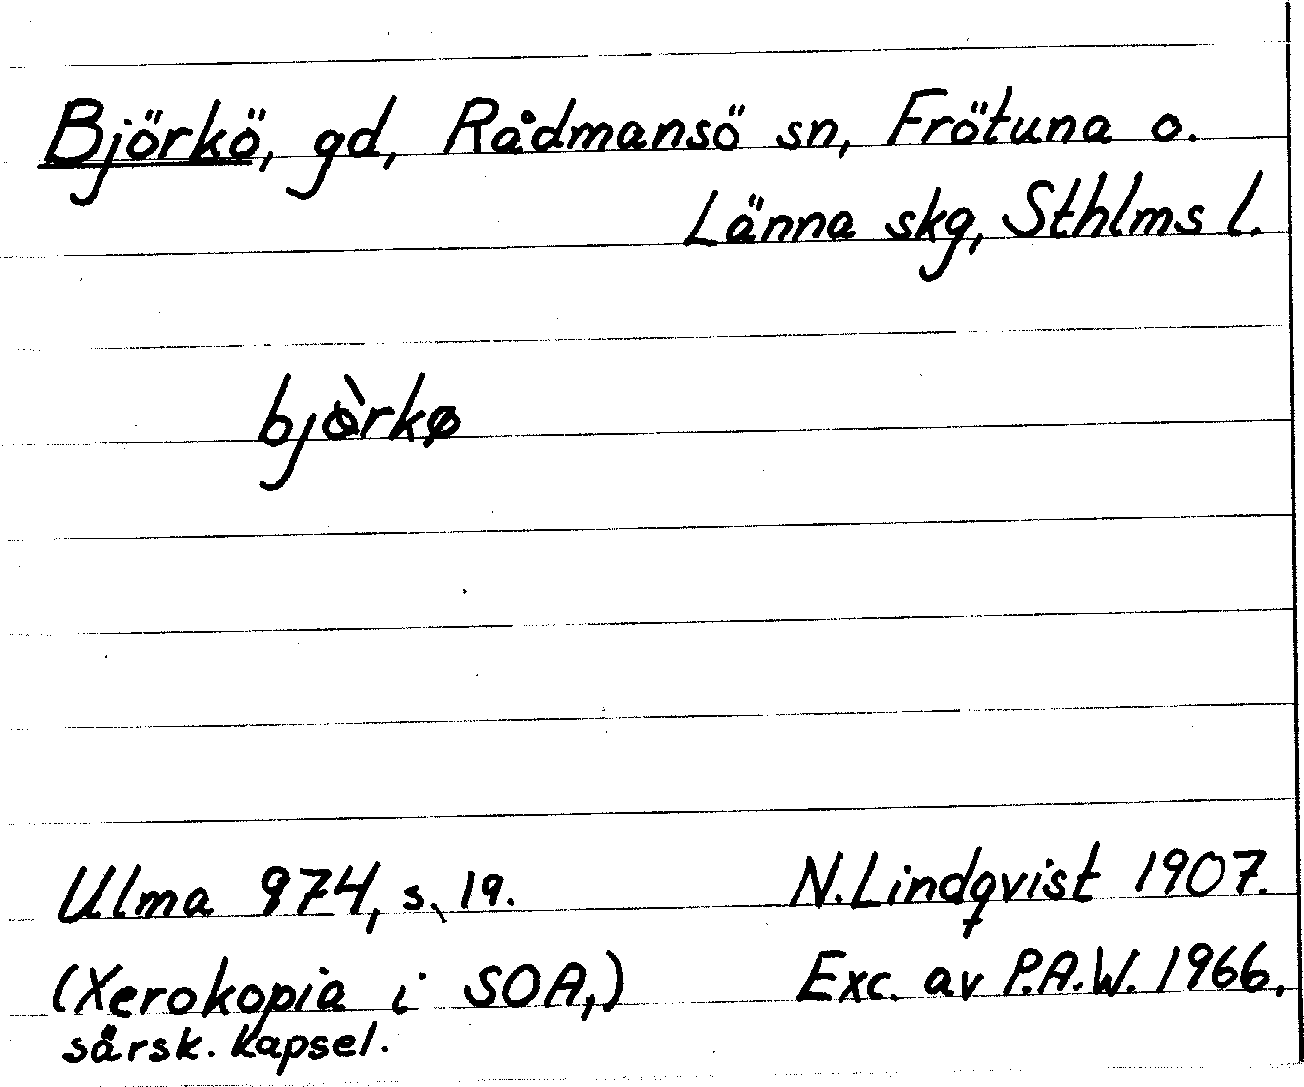 Björkö, gd, Rådmansö sn, Frötuna o.
Länna skg, Sthlms l.
bjørkø
Ulma 974, s. 19. N.Lindqvist 1907.
(Xerokopia i SOA,) Exc. av P.A.W. 1966.
särsk. kapsel.